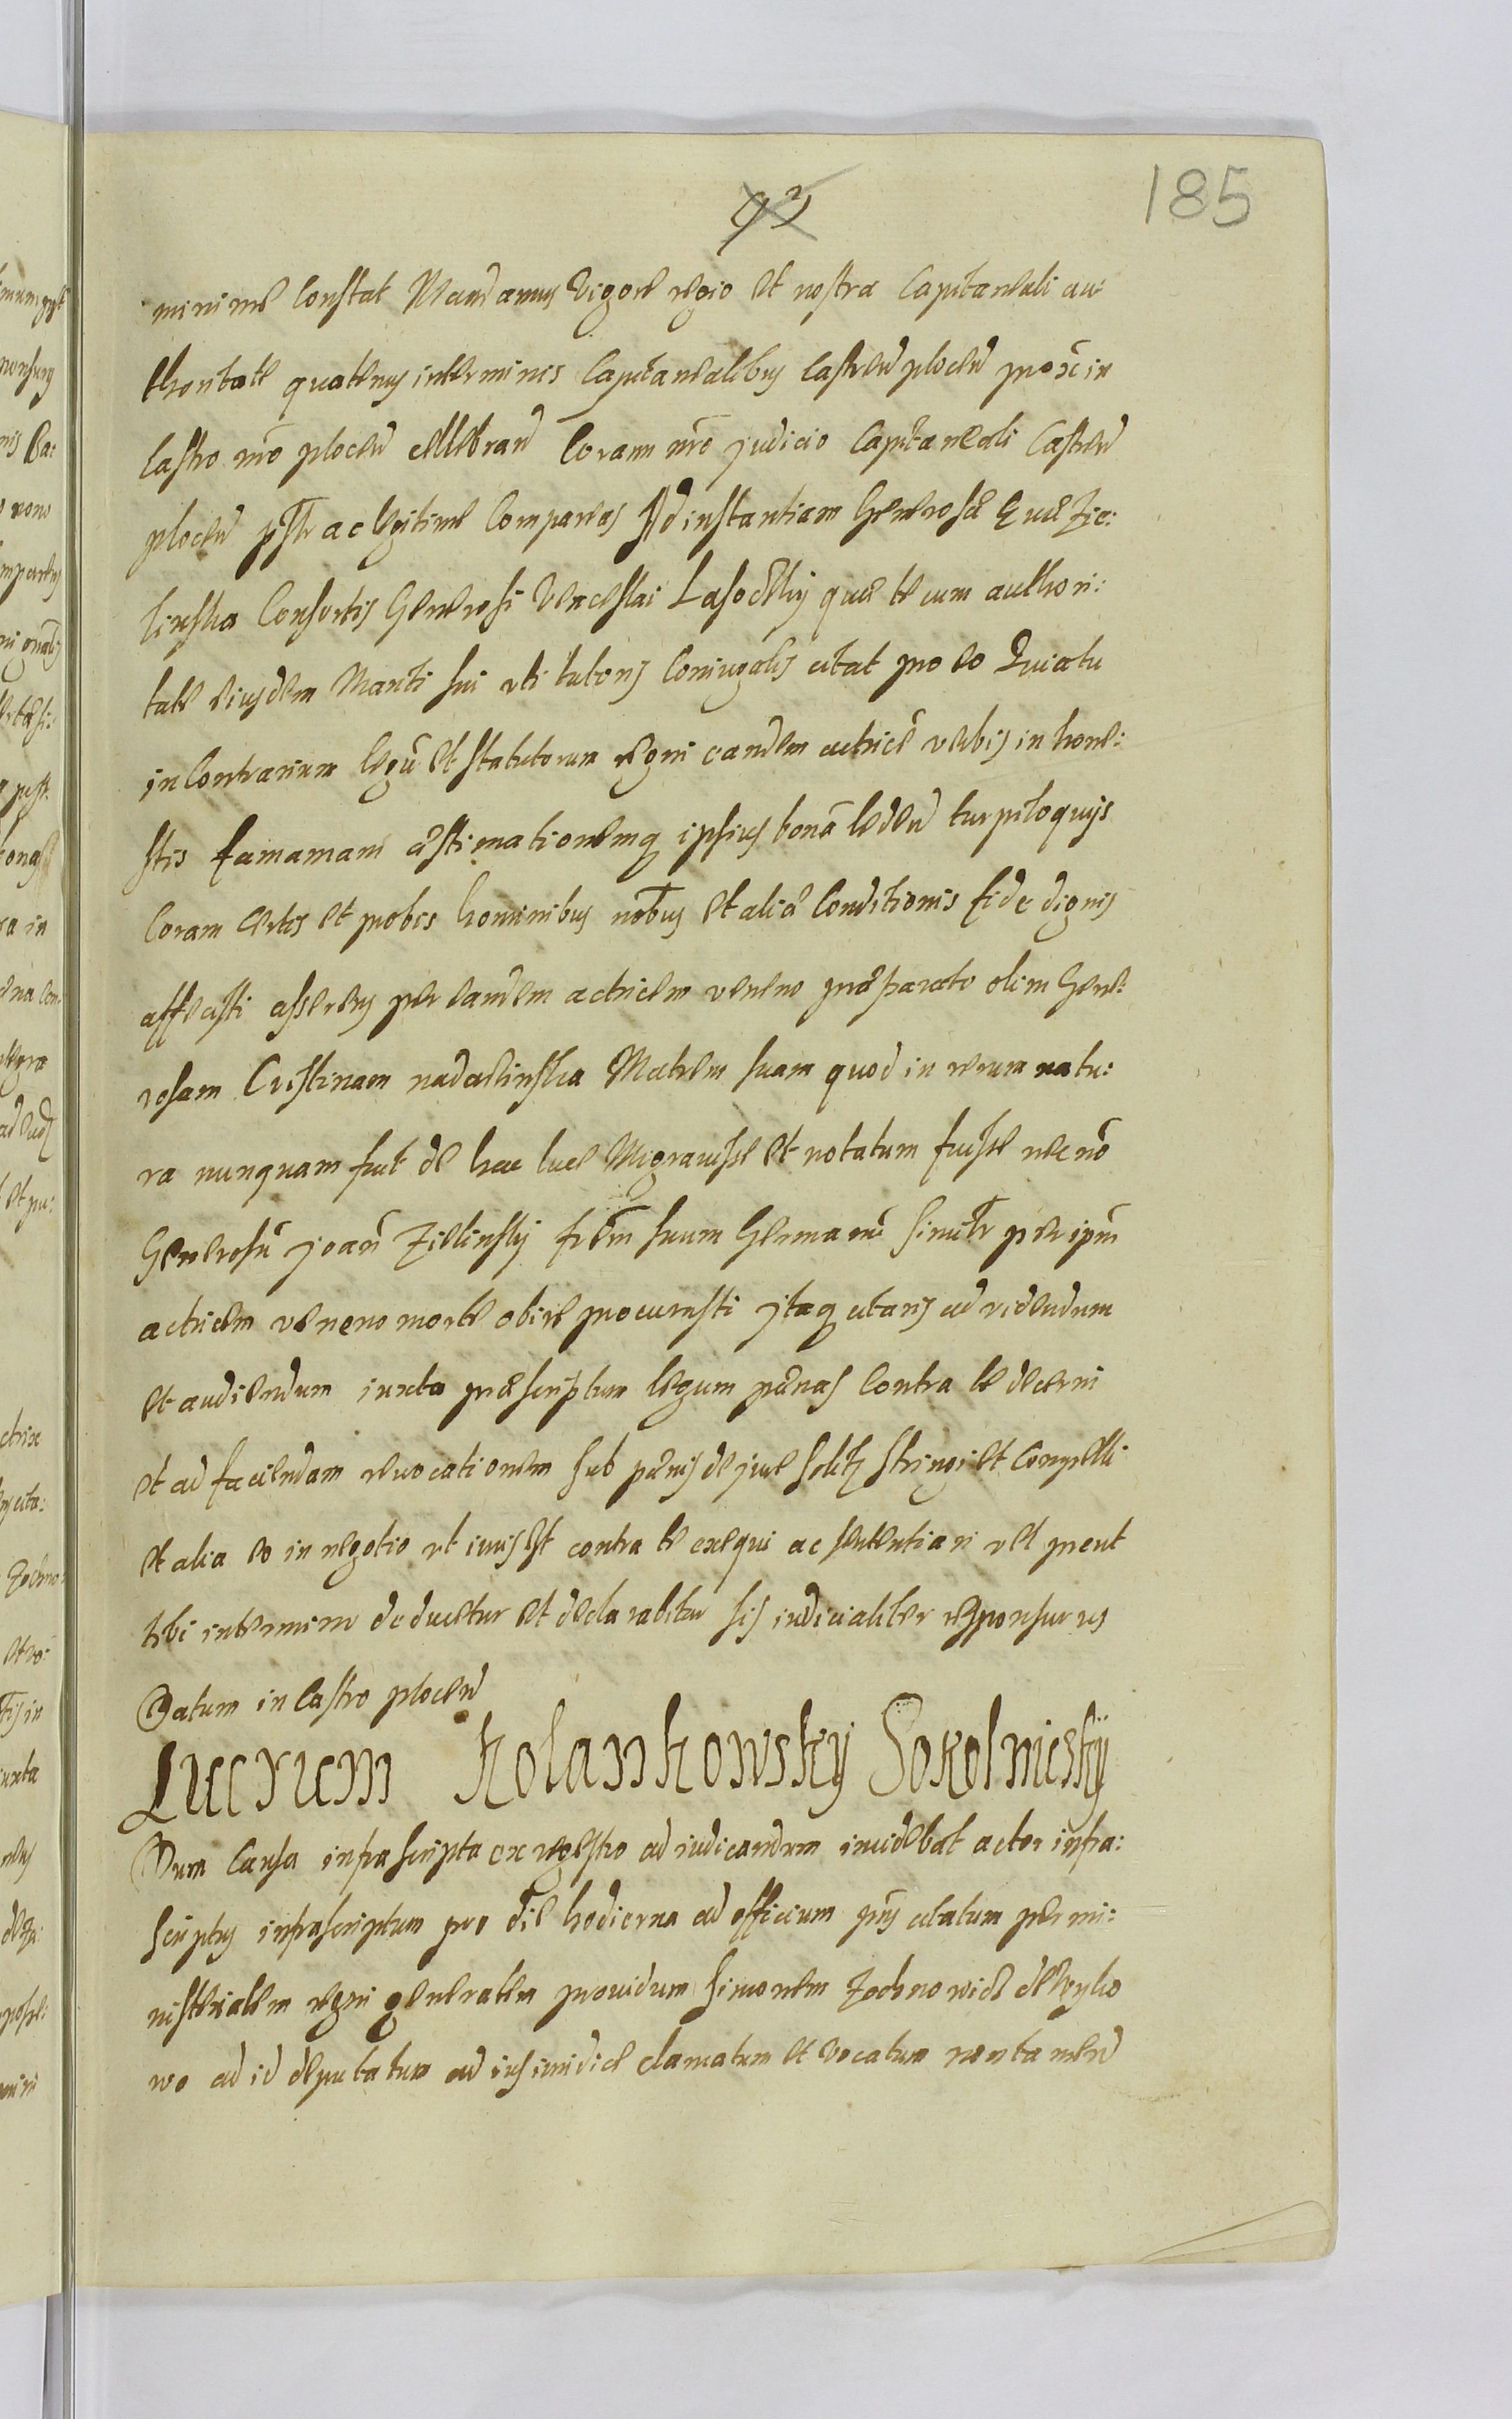 185
93
minime Constat Mandamus Vigore regio et nostra Capitaneali au:
thoritate quatenus interminis Capitanealibus Castren̄ plocen̄ prox̄ in
Castro nr̄o plocen̄ celebran̄ Coram nr̄o judicio Capitaneali Castren̄
plocen̄ pst̄r ac legitime Compareas Ad instantiam Generosæ Euæ Zie:
linska Consortis Generosi Venceslai Lasoczky quæ te cum authori:
tate eiusdem Mariti sui uti tutoris Coniugalis citat pro eo Quia tu
in Contrarium legū et statutorum regni eandem actricē verbis in hone:
stis famamam æstimationemq ipsius bonā leden̄ turpiloquijs
Coram Certis et probis hominibus nob̄us et aliæ Conditionis fide dignis
affecisti asserens per eandem actricem veneno præparato olim Gene:
rosam Cristinam nadaelinska Matrem suam quod in rerum natu:
ra nunquam fuit de hac luce Migravisse et notatum fuisse nec nō
Generosū joan̄ Zielinsky fr̄em suum Germanū simil̄r per ipm̄
actricem veneno morte obire procurasti jtaq citaris ad videndum
et audiendum iuxta præscriptum legum pænas Contra te decerni
et ad faciendam revocationem sub pænis de jure solitis stringi et Compelli
et alia eo in negotio ut iuris est contra te exequi ac sententiari vel prout
tibi intermino deducetur et declarabitur sis iudicialiter responsurus
Datum in Castro plocen̄
Lucrum Kolankowsky Sokolnicsky
Dum Causa infrascripta ex regestro ad iudicandum incidebat actor infra:
scriptus infrascriptum pro die hodierna ad officium pn̄s citatum per mi:
nisterialem regni generalem providum Simonem Zochnowicz de
wo ad id deputatum ad ius iuridice clamatum et vocatum non tamen̄